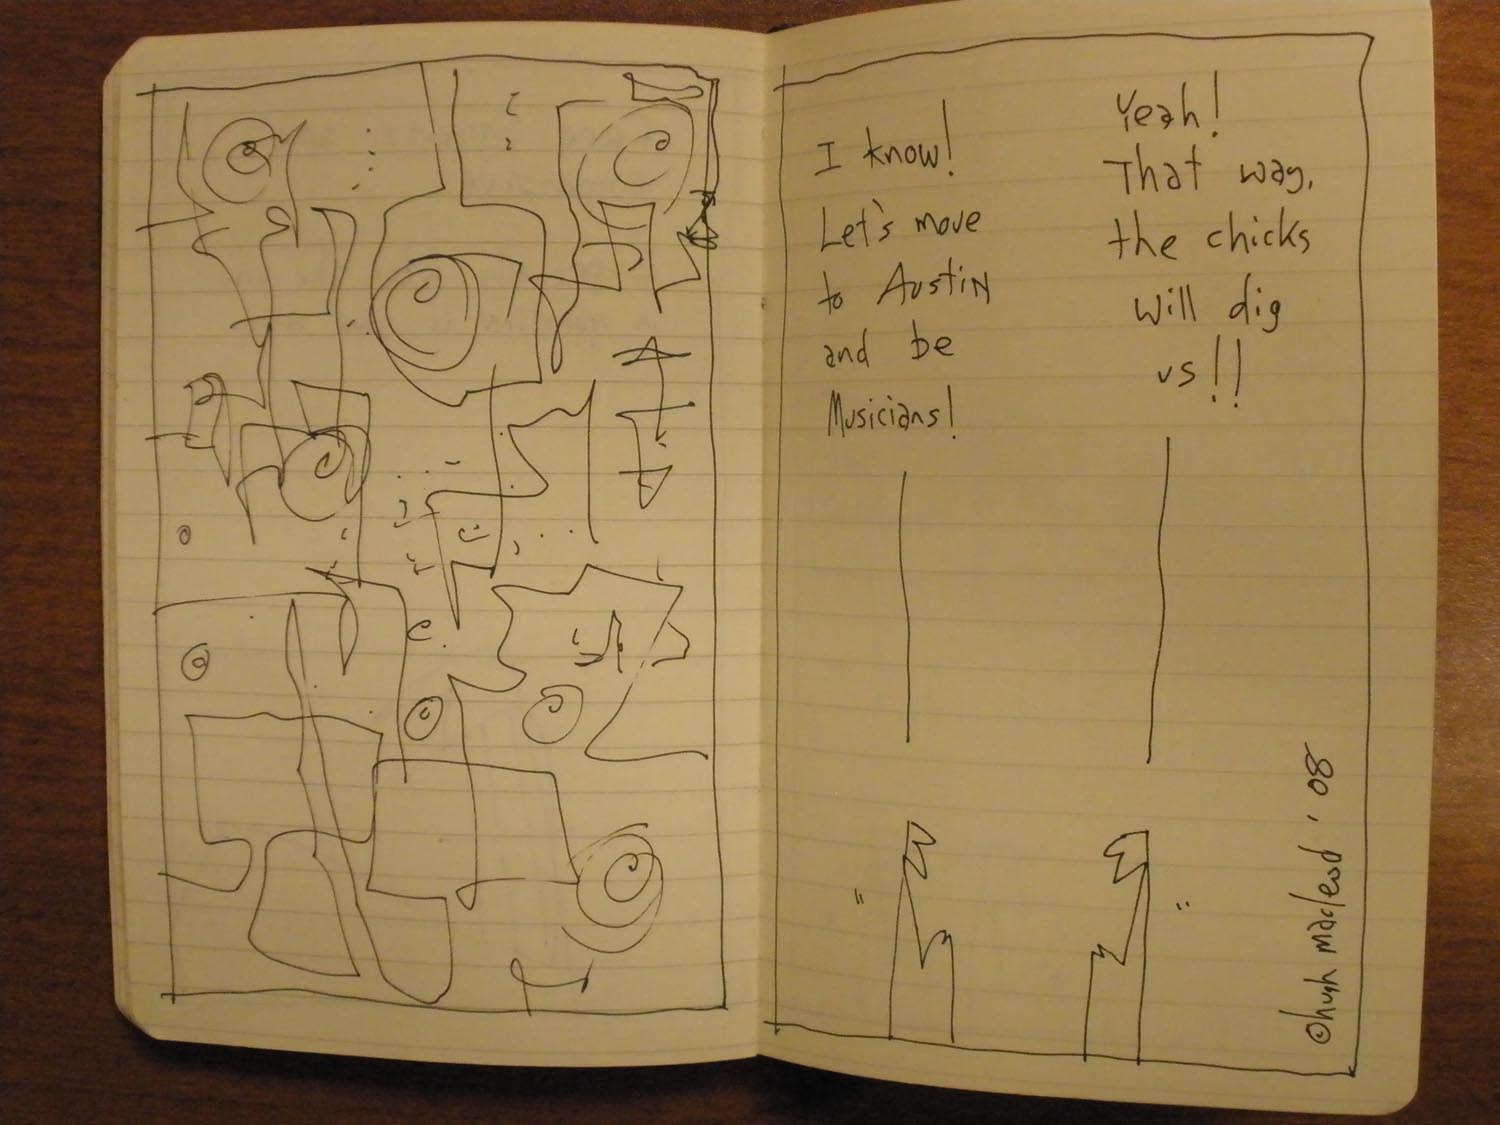 I know!
Let's move
to Austin
and be
Musicians!
Yeah!
That way,
the chicks
will dig
us!!
©hugh macleod '08